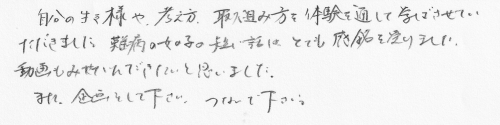 自分の生き様や、考え方、取り組み方を体験を通して学ばさせてい
ただきました 難病の女の子の短い話は、とても感銘を受けました。
動画もみせいただきたいと思いました。
また、企画をして下さい つないで下さい。